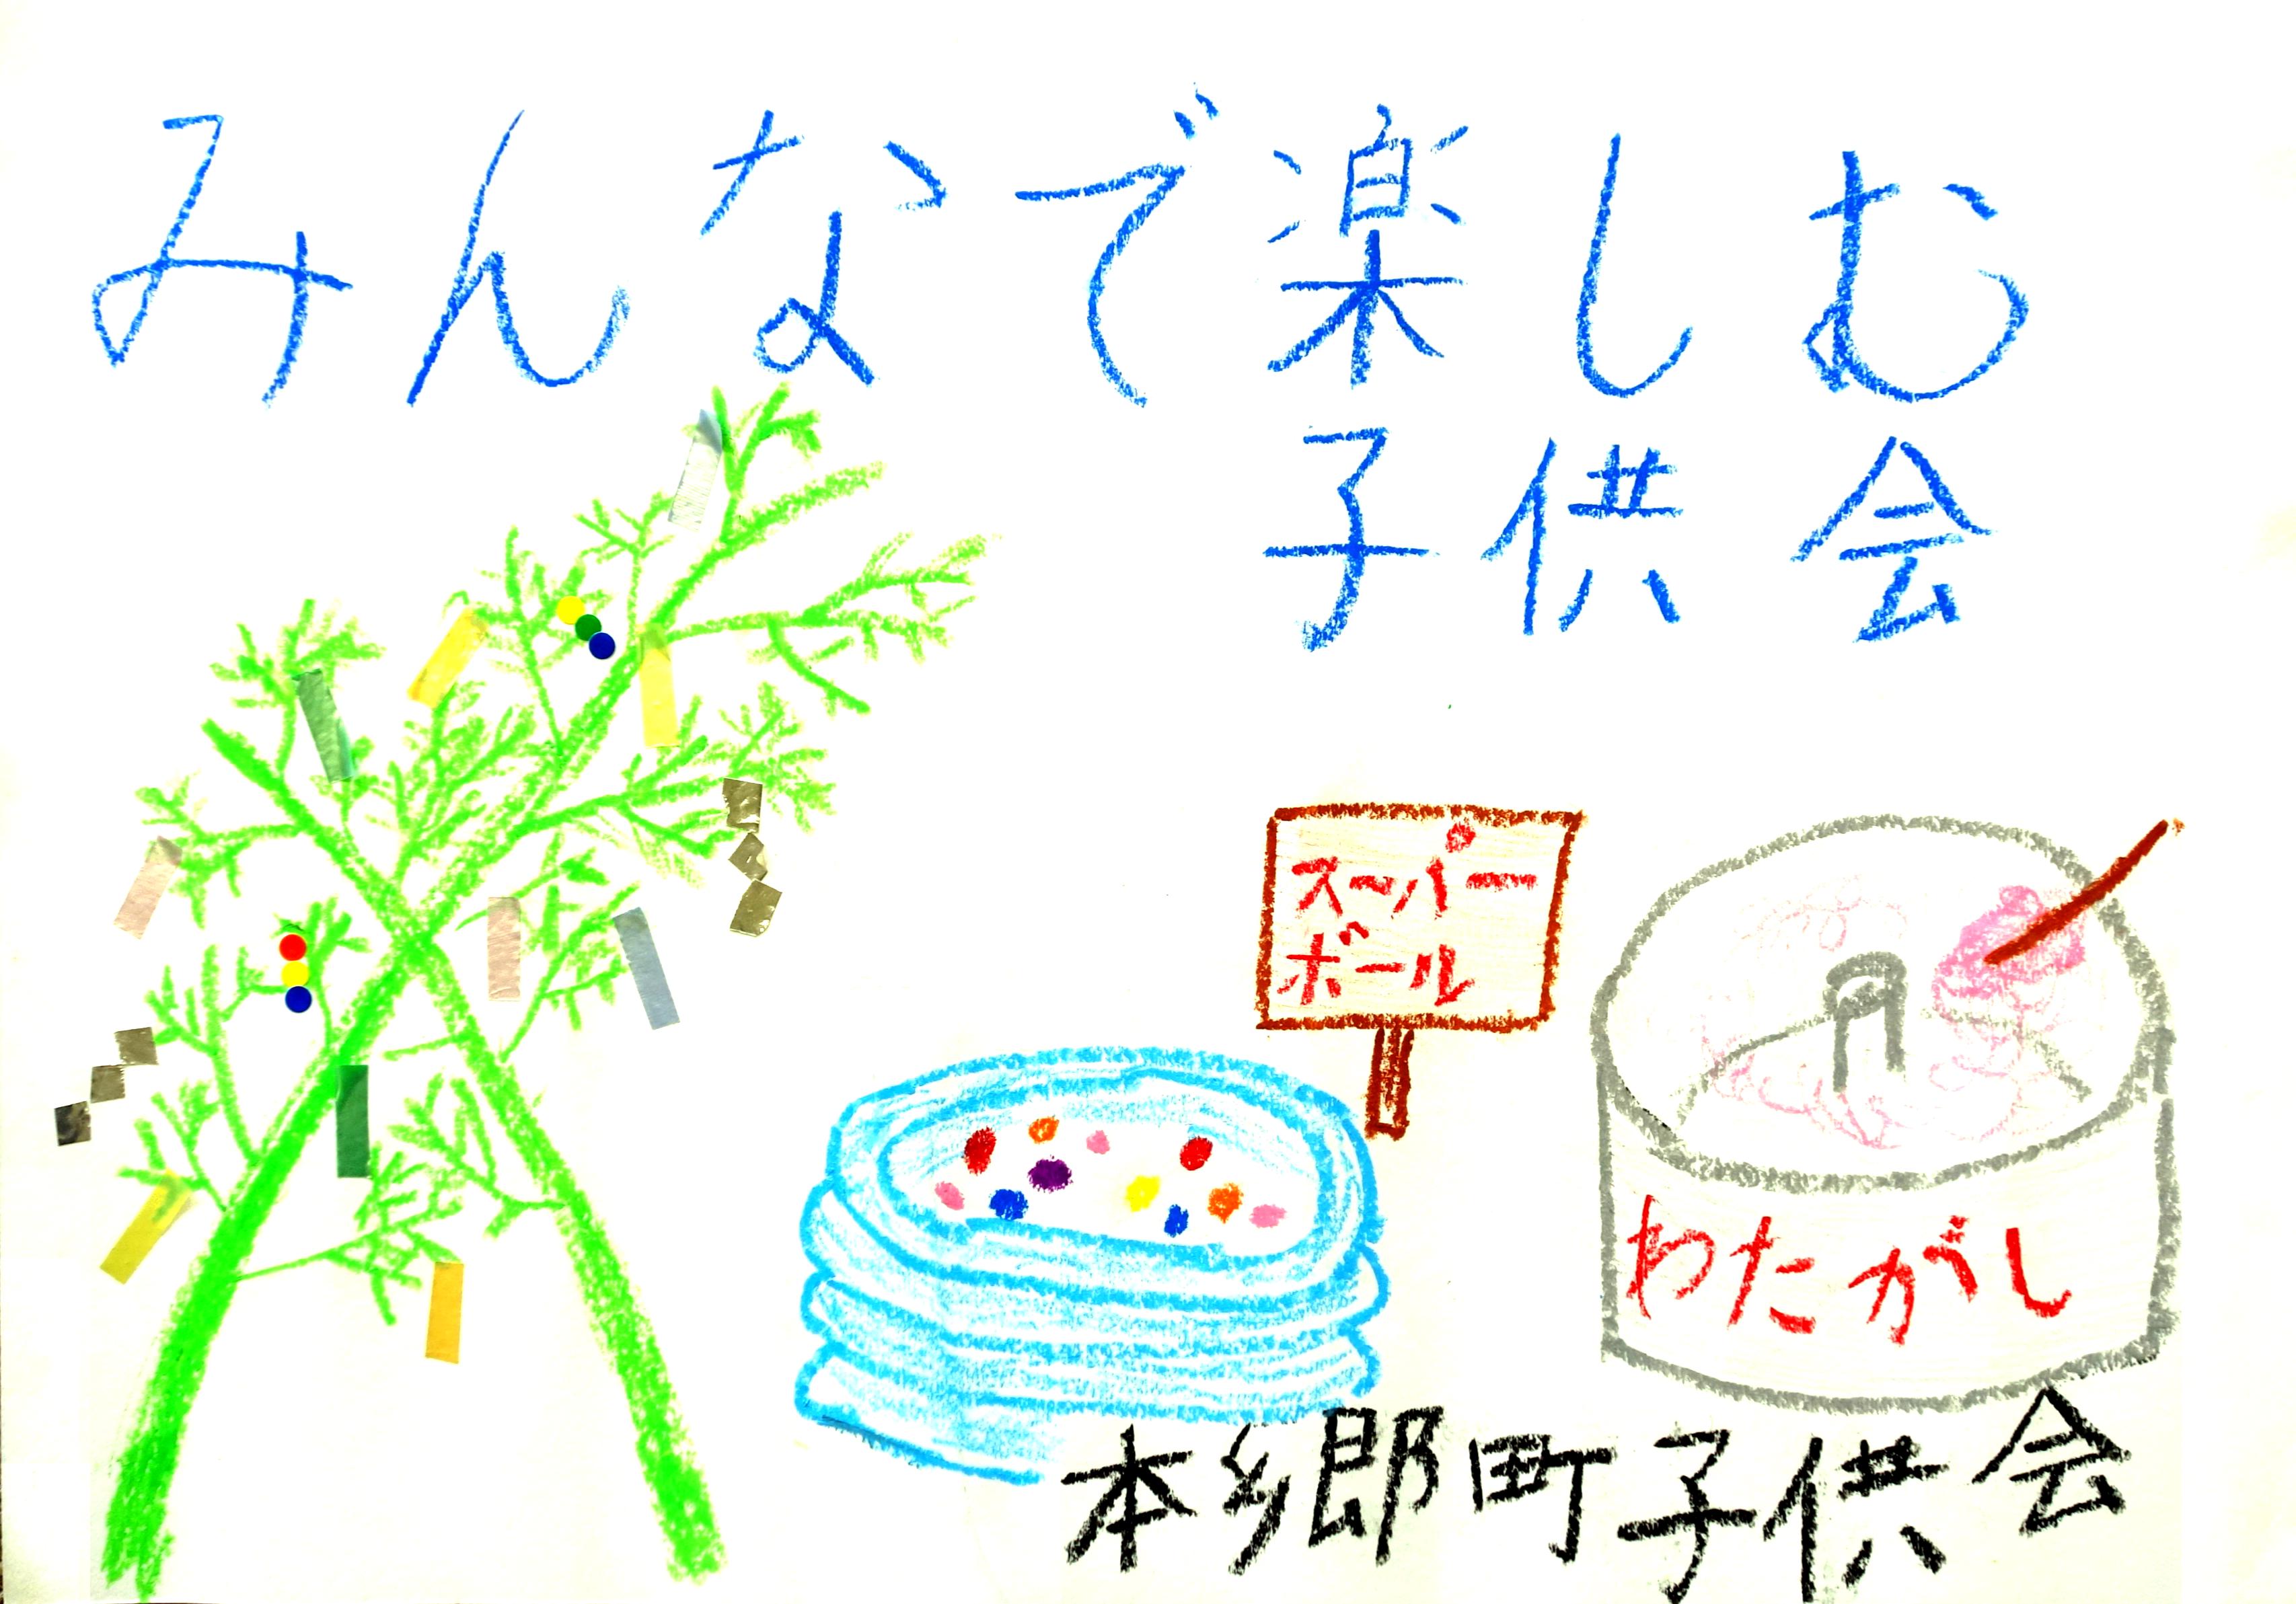 みんなで楽しむ
子供会
スーパー
ボール
わたがし
本郷町子供会